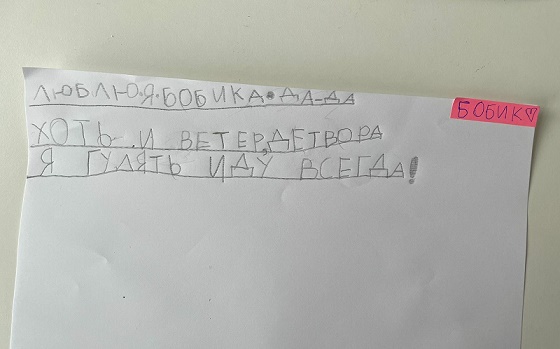 ЛЮБЛЮ.Я.БОБИКА•ДА-ДА
БОБИК♡
ХОТЬ .И ВЕТЕР,ДЕТВОРА
Я ГУЛЯТЬ ИДУ ВСЕГДА!